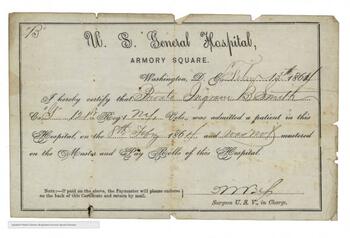 "B"
U. S. General Hospital,
ARMORY SQUARE.
Washington, D. C., 15th 1864
I hereby certify that Private Ingram B Smith
Co. 121st Reg't NY Vols., was admitted a patient in this
Hospital, on the 8th Feby 1864 and was not mustered
on the Muster and Pay Rolls of this Hospital.
NOTE:—If paid on the above, the Paymaster will please endorse
on the back of this Certificate and return by mail.
Surgeon U. S. V., in Charge.